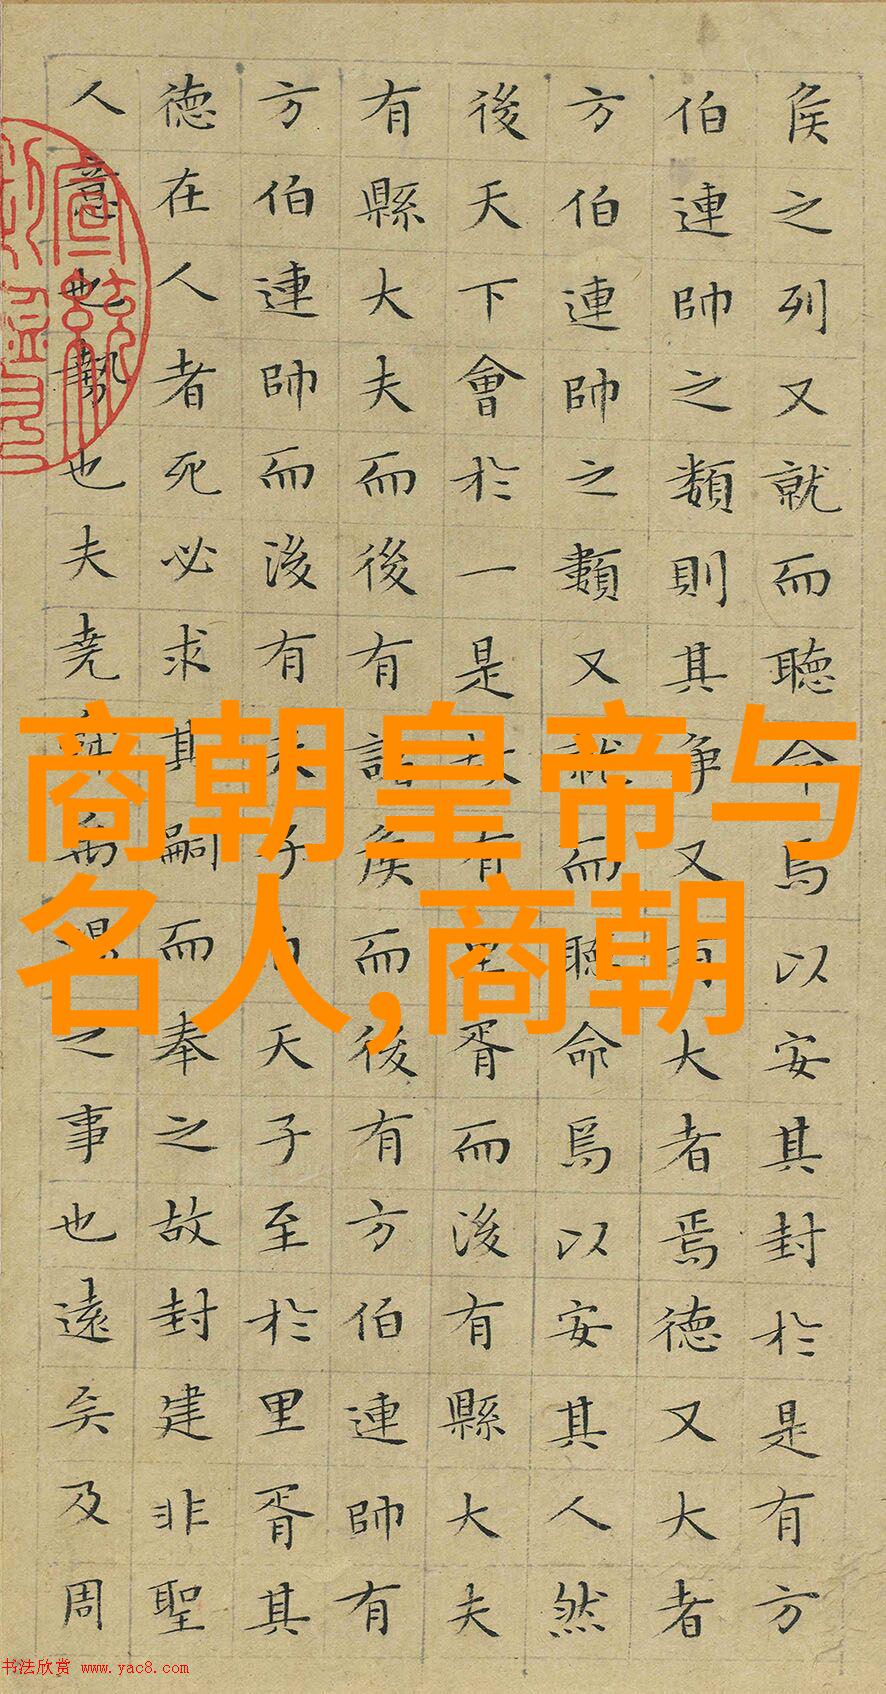 侯之列又就而聽命焉以安其封於是有方
伯連帥之類則其爭又有大者焉德又大者
方伯連帥之類又就而聽命焉以安其人然
後天下會於一是故有里胥而後有縣大夫
有縣大夫而後有諸侯而後有方伯連帥有
方伯連帥而後有天子自天子至於里胥其
德在人者死必求其嗣而奉之故封建非聖
人意也勢也夫堯舜禹湯之事也遠矣及周
商朝皇帝与
名人,商朝
书法欣赏 www.yac8.com